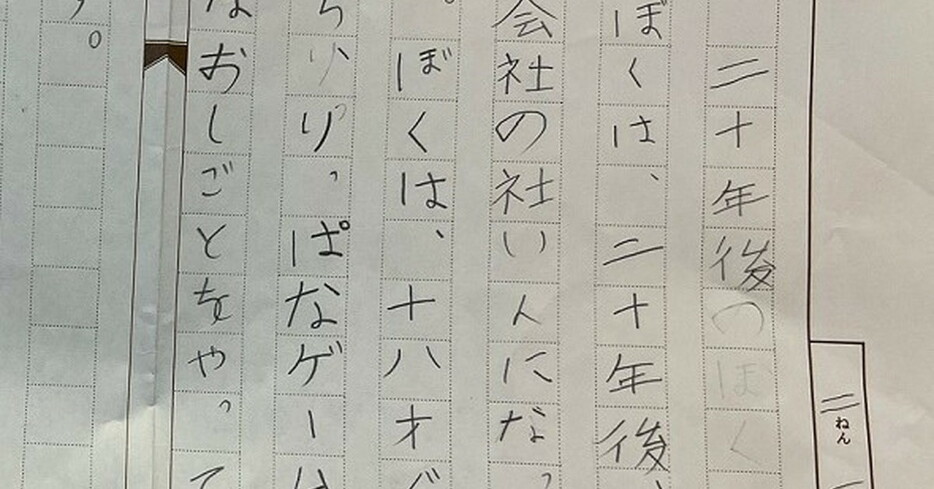 二十年後のぼく
ぼくは、二十年後、
会社の社い人になっ
。ぼくは、十八才
りっぱなゲー
なおしごとをやって
。
二ねん